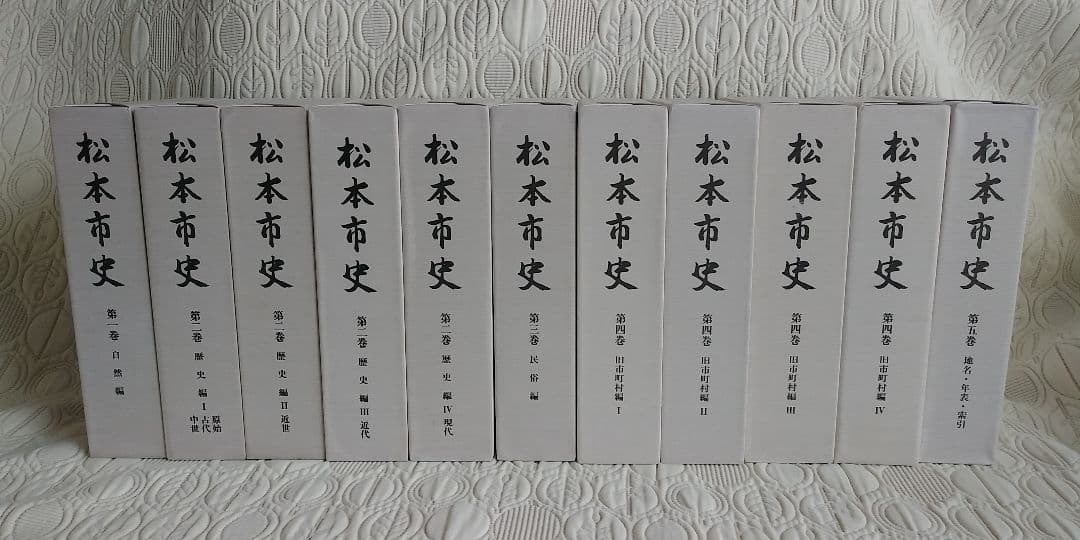 松本市史
第一巻 自然編
松本市史
第二巻 歴史編 Ⅰ 原始 古代 中世
松本市史
第二巻 歴史編 Ⅱ 近世
松本市史
第二巻 歴史編 Ⅲ 近代
松本市史
第二巻 歴史編 Ⅳ 現代
松本市史
第三巻 民俗編
松本市史
第四巻 旧市町村編 Ⅰ
松本市史
第四巻 旧市町村編 Ⅱ
松本市史
第四巻 旧市町村編 Ⅲ
松本市史
第四巻 旧市町村編 Ⅳ
松本市史
第五巻 地名・年表・索引